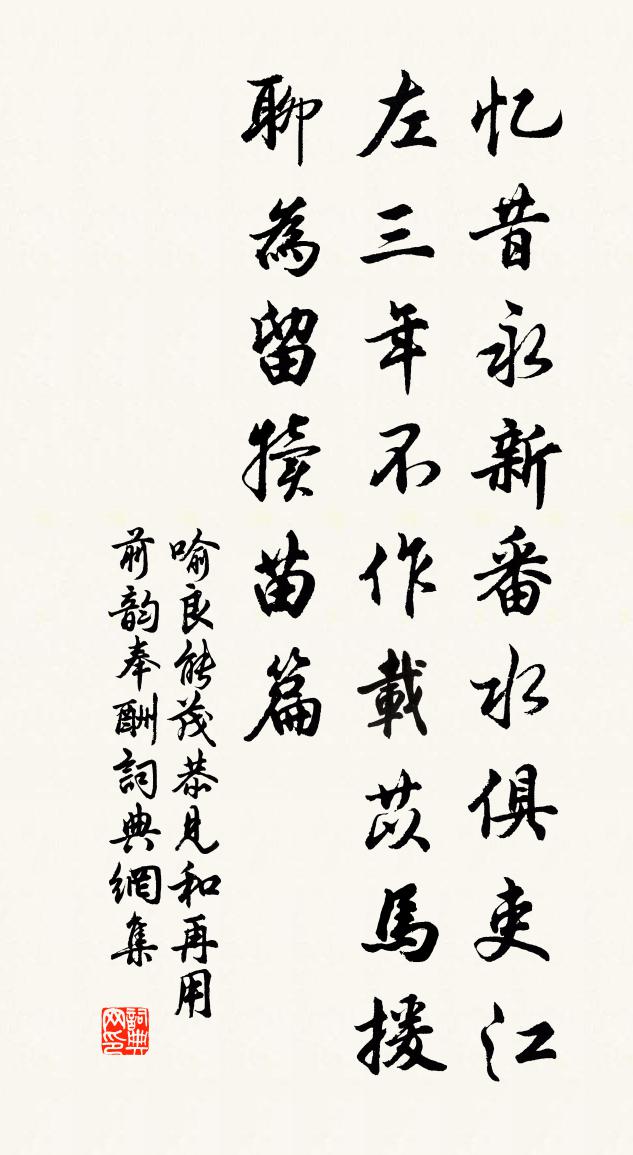 忆昔永新番水俱吏江
左三年不作載苡馬援
聊為留犢苗篇
喻良能茂恭見和再用
前韵奉酬詞典網集
詞典网印